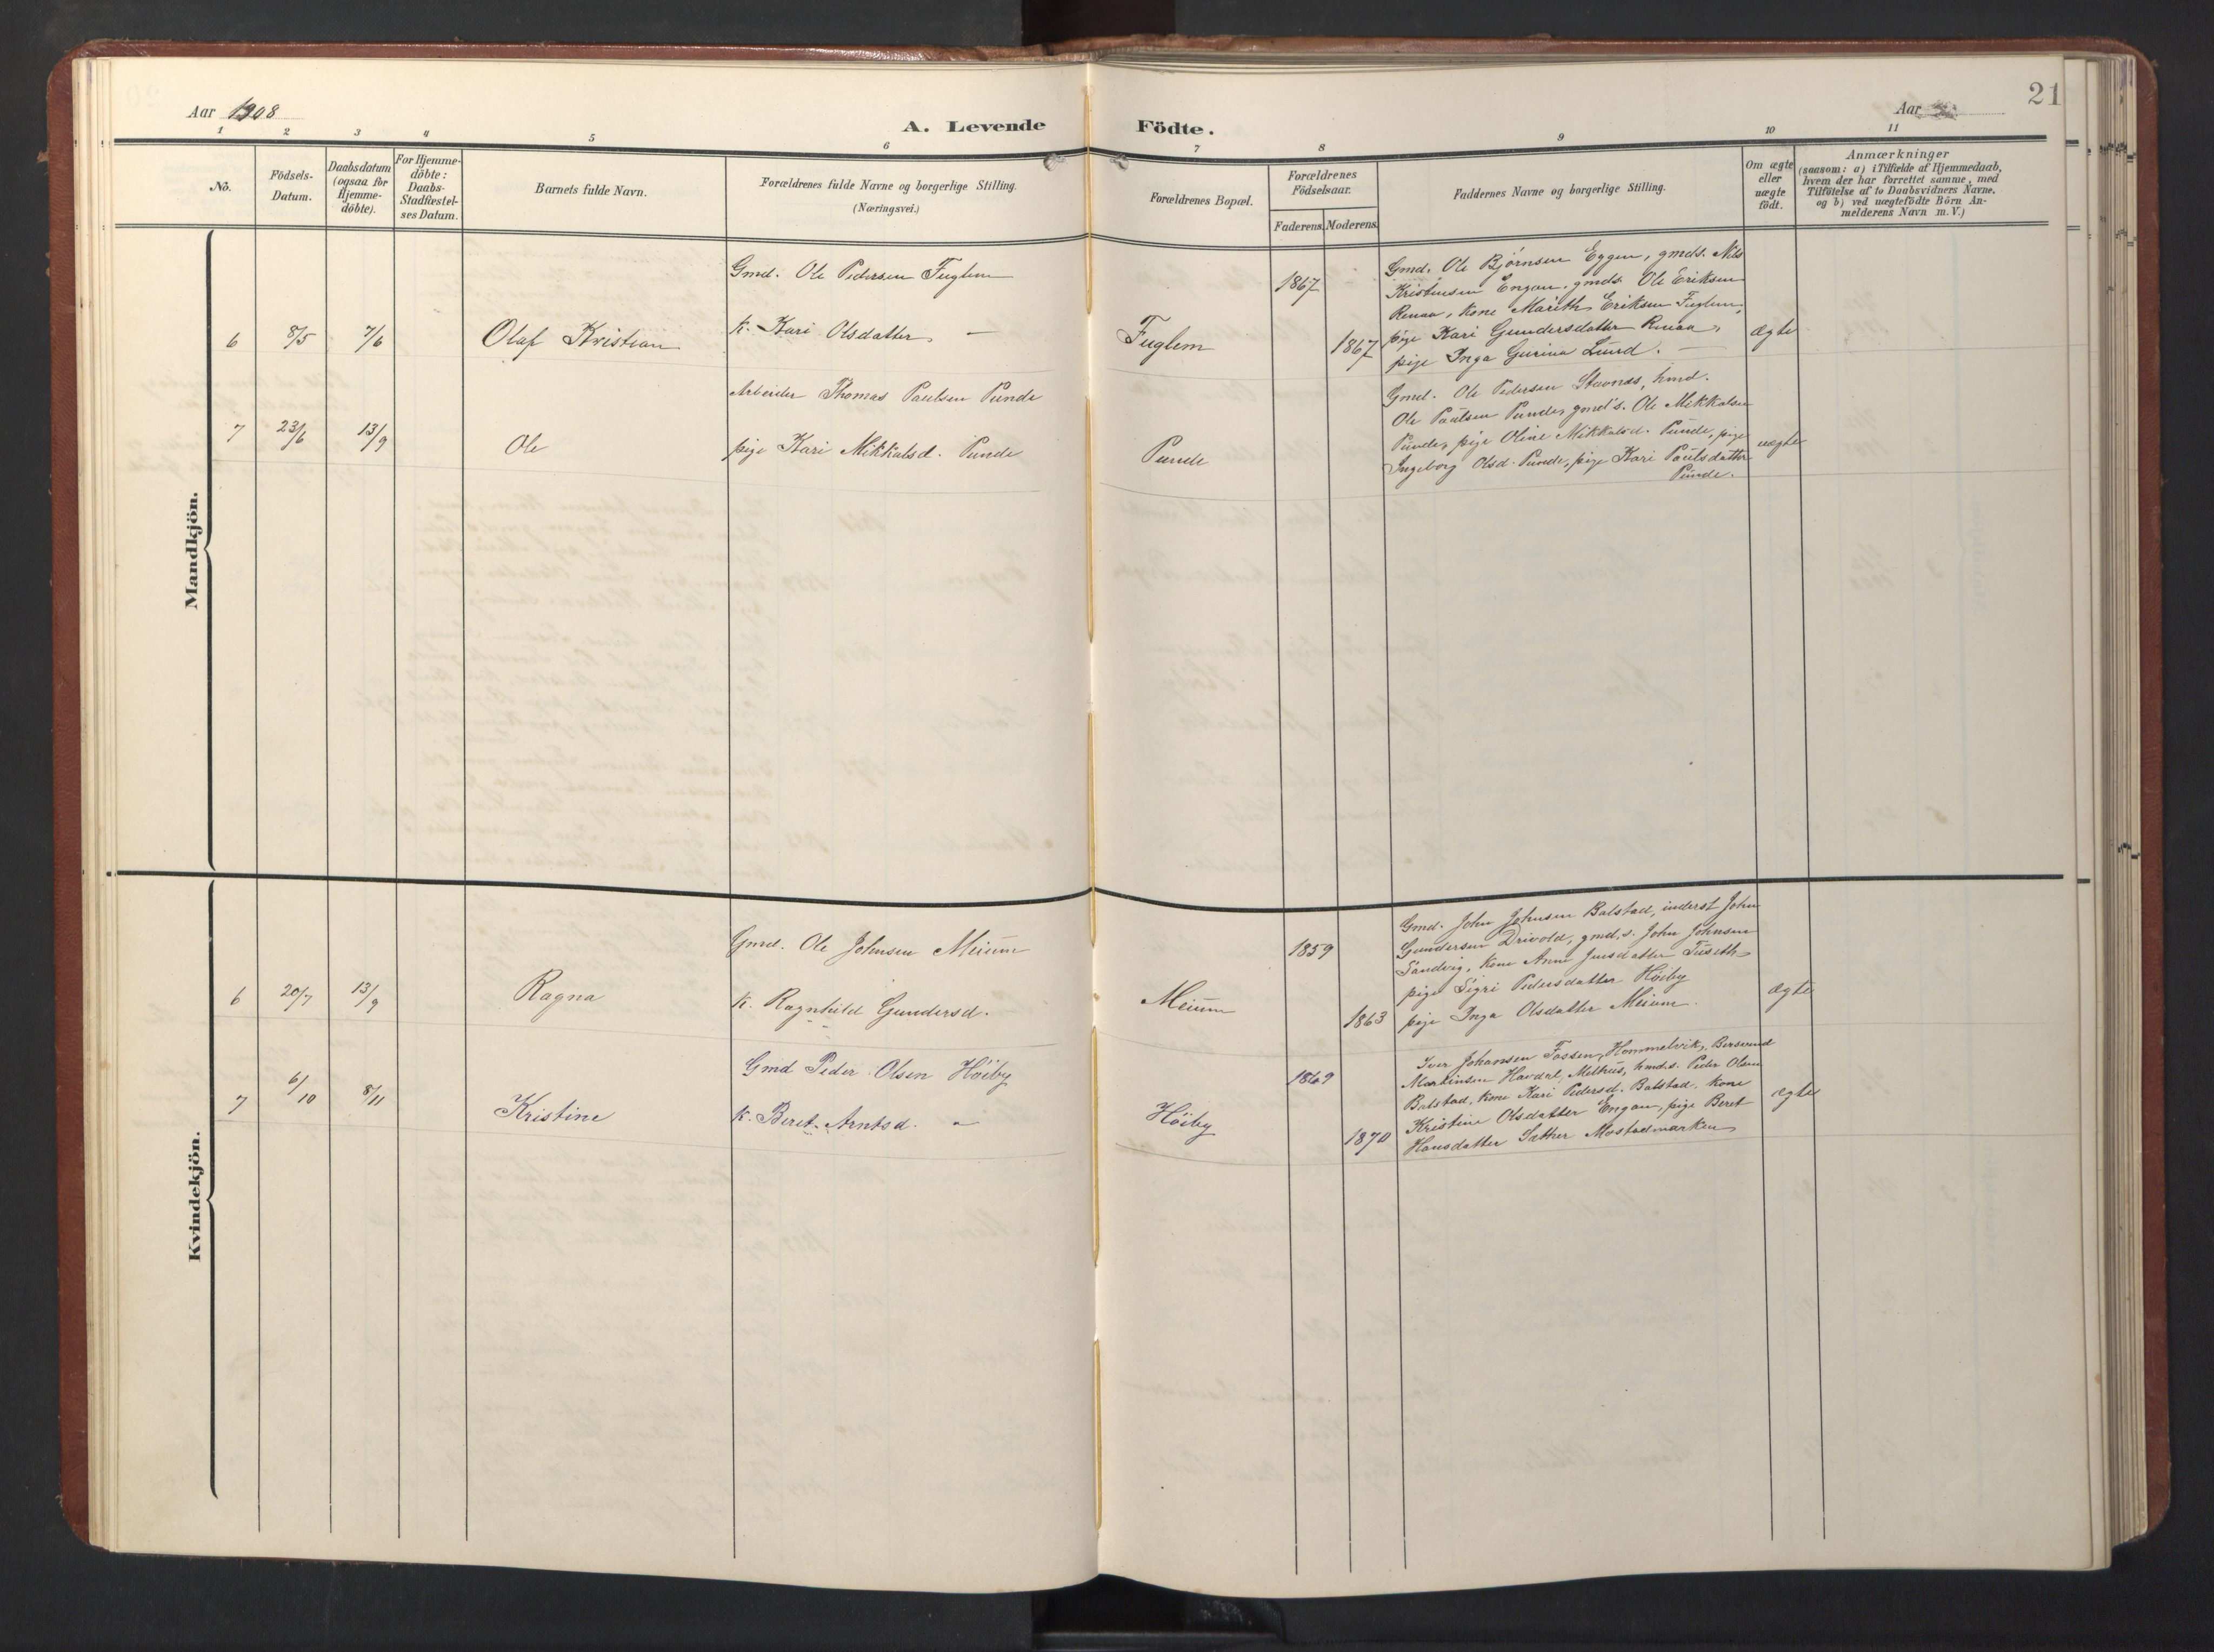 21
Aar 1908
Aar
A. Levende Födte.
1 2 3 4 5 6 7 8 9 10 11
No.
Födsels-
Datum.
Daabsdatum
(ogsaa for
Hjemme-
döbte).
For Hjemme-
döbte:
Daabs-
Stadfæstel-
ses Datum.
Barnets fulde Navn.
Forældrenes fulde Navne og borgerlige Stilling.
(Næringsvei.)
Forældrenes Bopæl.
Forældrenes
Födselsaar.
Faderens. Moderens.
Faddernes Navne og borgerlige Stilling.
Om ægte
eller
uægte
födt.
Anmærkninger
(saasom: a) i Tilfælde af Hjemmedaab,
hvem der har forrettet samme, med
Tilföielse af to Daabsvidners Navne,
og b) ved uægtefödte Börn An-
melderens Navn m. V.)
Mandkjön.
6 8/5 7/6 Olaf Kristian
Gmd. Ole Pedersen Fuglem
k. Kari Olsdatter —
Fuglem
1867
1867
Gmd. Ole Bjørnsen Eggen, gmds. Nils
Kristensen Engan, gmds. Ole Eriksen
Renaa, kone Marith Eriksen Fuglem,
pige Kari Gundersdatter Renaa,
pige Inga Gurina Lund. —
ægte
7 23/6 13/9 Ole
Arbeider Thomas Paulsen Punde
pige Kari Mikkalsd. Punde
Punde
Gmd. Ole Pedersen Stavnås, hmd.
Ole Paulsen Punde, gmd's. Ole Mikkalsen
Punde, pige Oline Mikkalsd. Punde, pige
Ingeborg Olsd. Punde, pige Kari Paulsdatter
Punde.
uægte
Kvindekjön.
6 20/7 13/9 Ragna
Gmd. Ole Johnsen Meium
k. Ragnhild Gundersd.
Meium
1859
1863
Gmd. John Johnsen Balstad, inderst John
Gundersen Drivold, gmd,s. John Johnsen
Sandvig, kone Anne Jensdatter Tuseth
pige Sigri Pedersdatter Höiby
pige Inga Olsdatter Meium.
ægte
7 6/10 8/11 Kristine
Gmd Peder Olsen Höiby
k. Beret Arntsd. "
Höiby
1869
1870
Iver Johansen Fossen, Hommelvik, Bersvend
Martinsen Havdal, Melhus, hmds. Peder Olsen
Balstad, kone Kari Pedersd. Balstad, kone
Kristine Olsdatter Engan, pige Beret
Hansdatter Sæther Mostadmarken
ægte